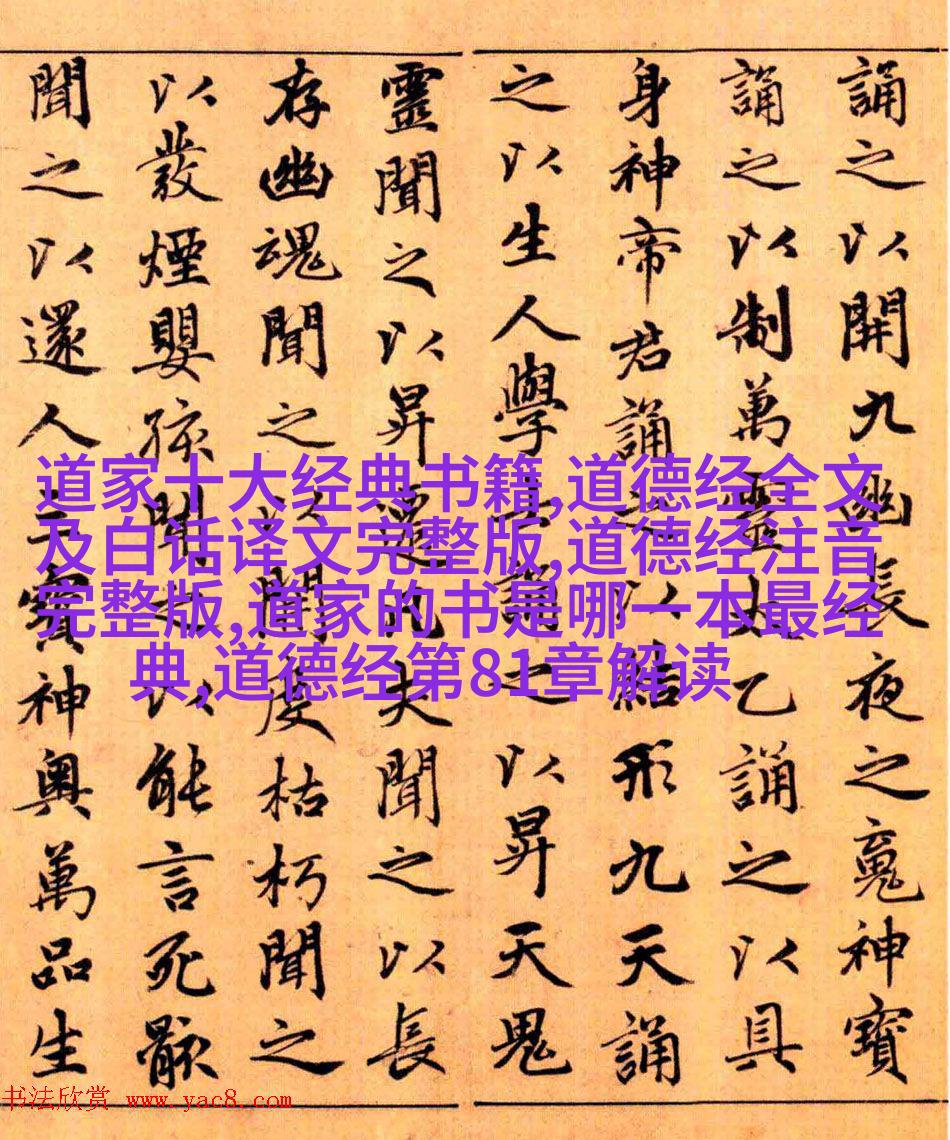 誦之以開九幽長夜之魂神寶
誦之以制萬靈太乙誦之以具
身神帝君誦之以結形九天誦
之以生人學士誦之以昇天鬼
靈聞之以昇遷凡夫聞之以長
存幽魂聞之以開度枯朽聞之
以發煙嬰孩聞之以能言死骸
聞之以還人三寶神奧萬品生
道家十大经典书籍,道德经全文
及白话译文完整版,道德经注音
完整版,道家的书是哪一本最经
典,道德经第81章解读
书法欣赏 www.yac8.com